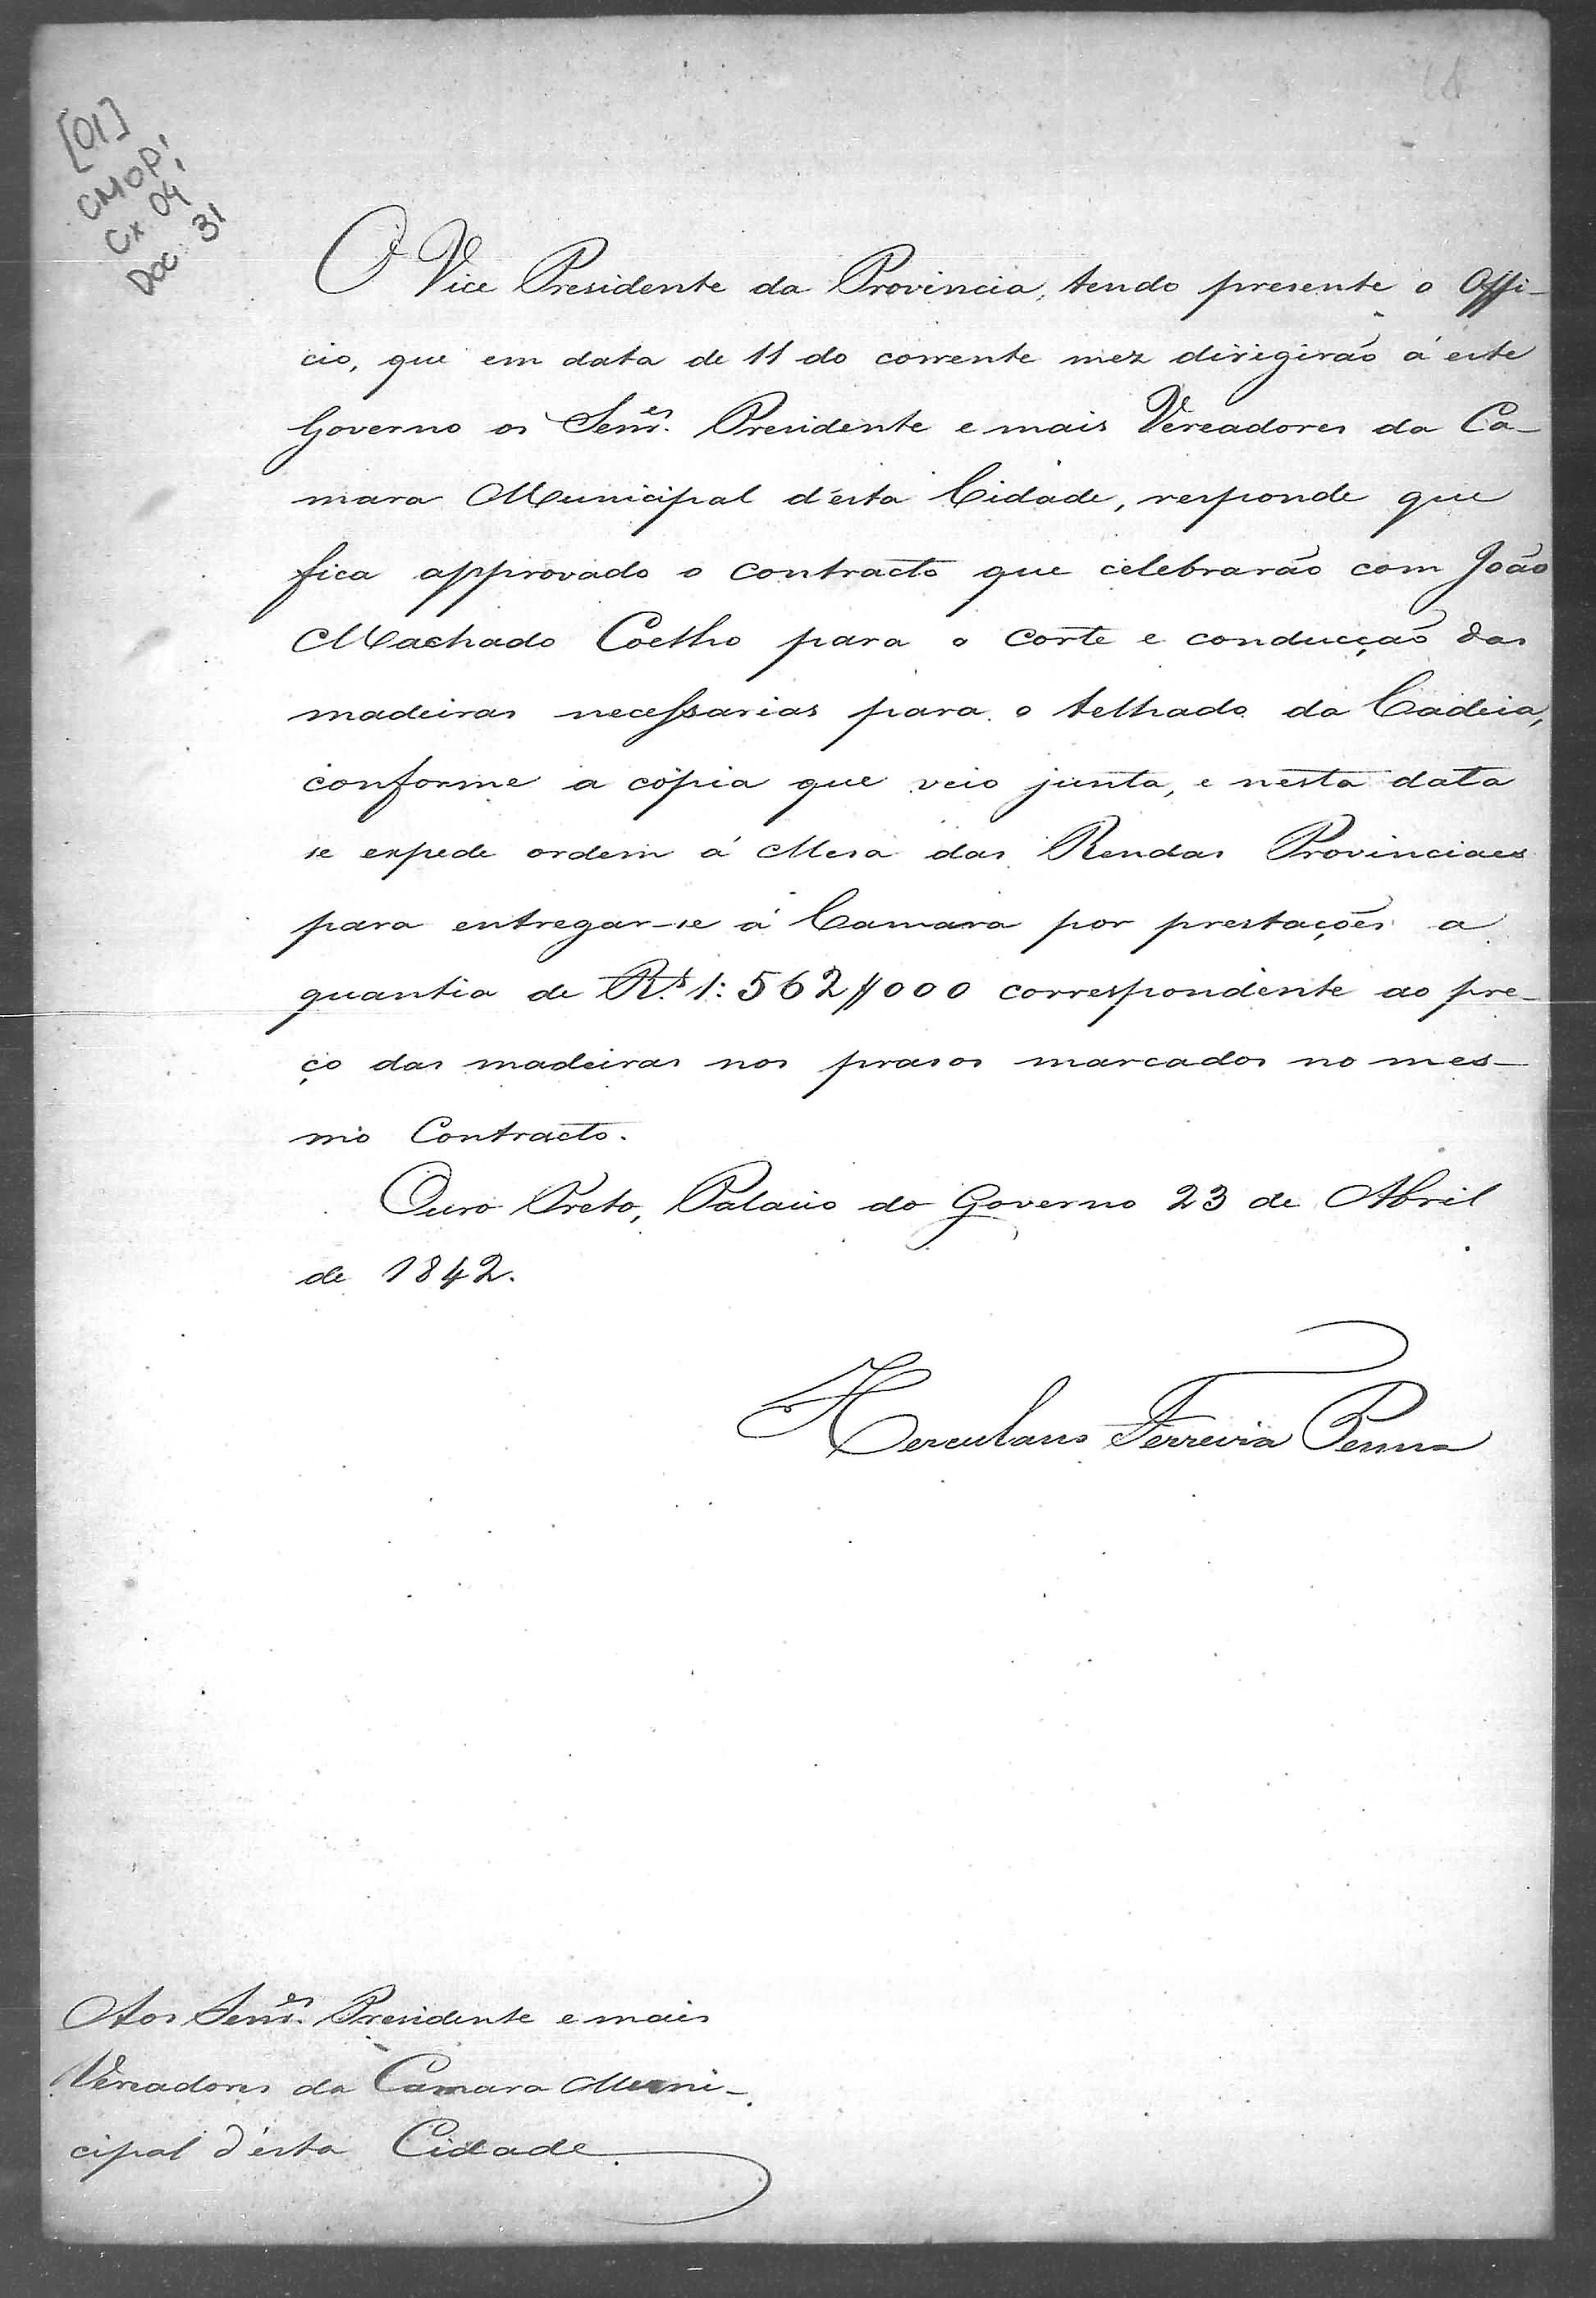 [01]
CMOP;
Cx 04;
Doc: 31
O Vice Presidente da Provincia, tendo presente o Offi-
cio, que em data de 11 do corrente mez dirigirão á este
Governo os Senr.es Presidente e mais Vereadores da Ca-
mara Municipal d'esta Cidade, responde que
fica approvado o contracto que celebrarão com João
Machado Coelho para o corte e conducção das
madeiras necessarias para o telhado da Cadeia,
conforme a copia que veio junta, e nesta data
se expede ordem á Mesa das Rendas Provinciaes
para entregar-se á Camara por prestações a
quantia de R.s 1:562$000 correspondente ao pre-
ço das madeiras nos prasos marcados no mes-
mo Contracto.
Ouro Preto, Palacio do Governo 23 de Abril
de 1842.
Herculano Ferreira Penna
Aos Senr.es Presidente e mais
Vereadores da Camara Muni-
cipal d'esta Cidade.